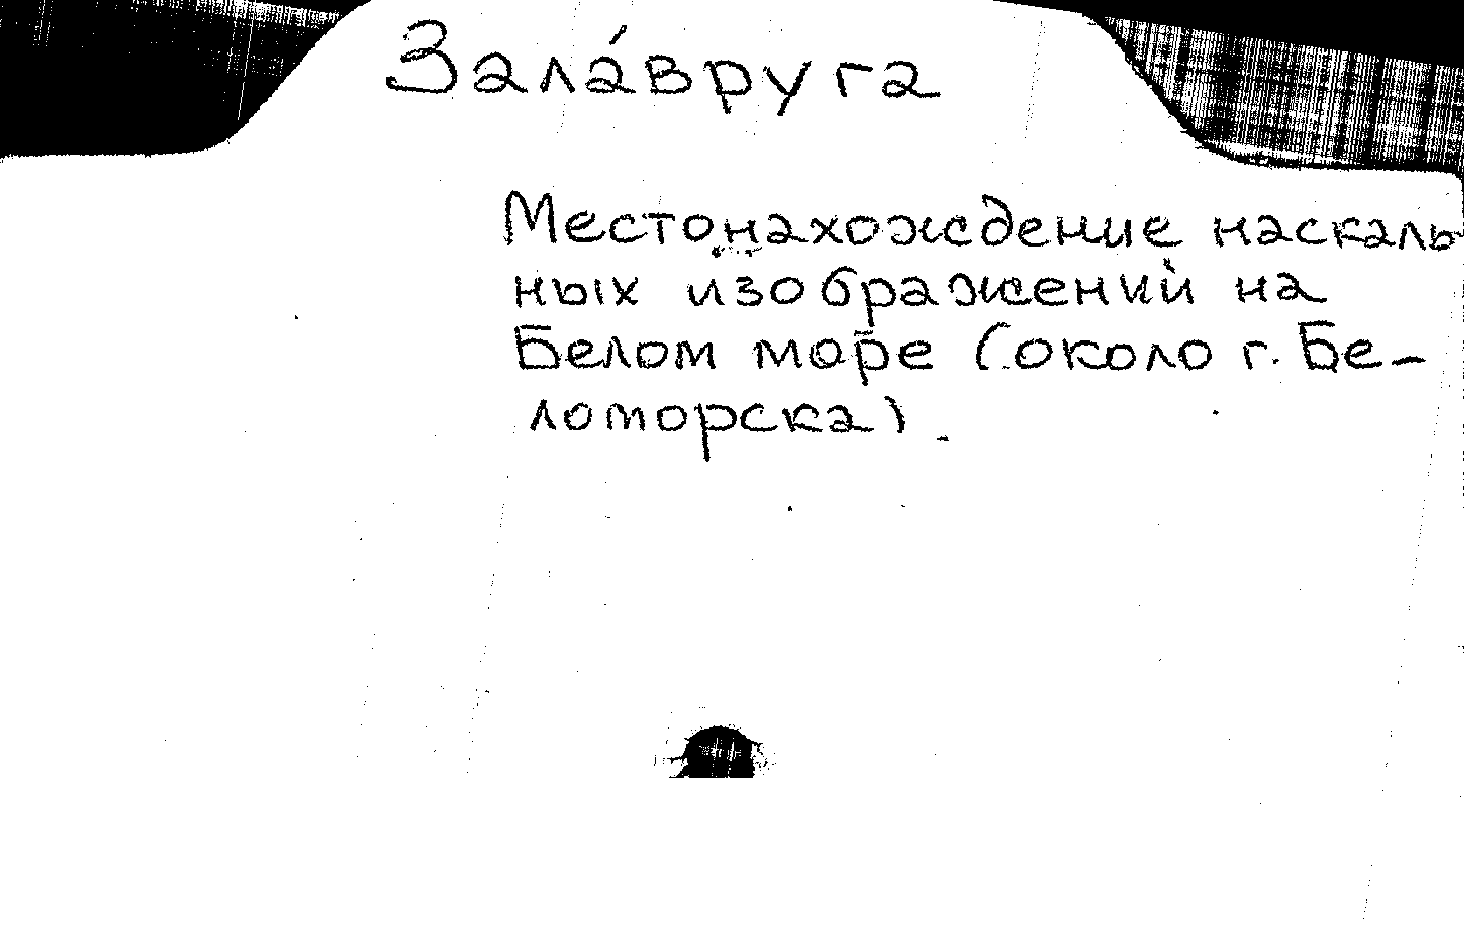 Зала́вруга
Местонахождение наскаль-
ных изображений на
Белом море (около г. Бе-
ломорска).